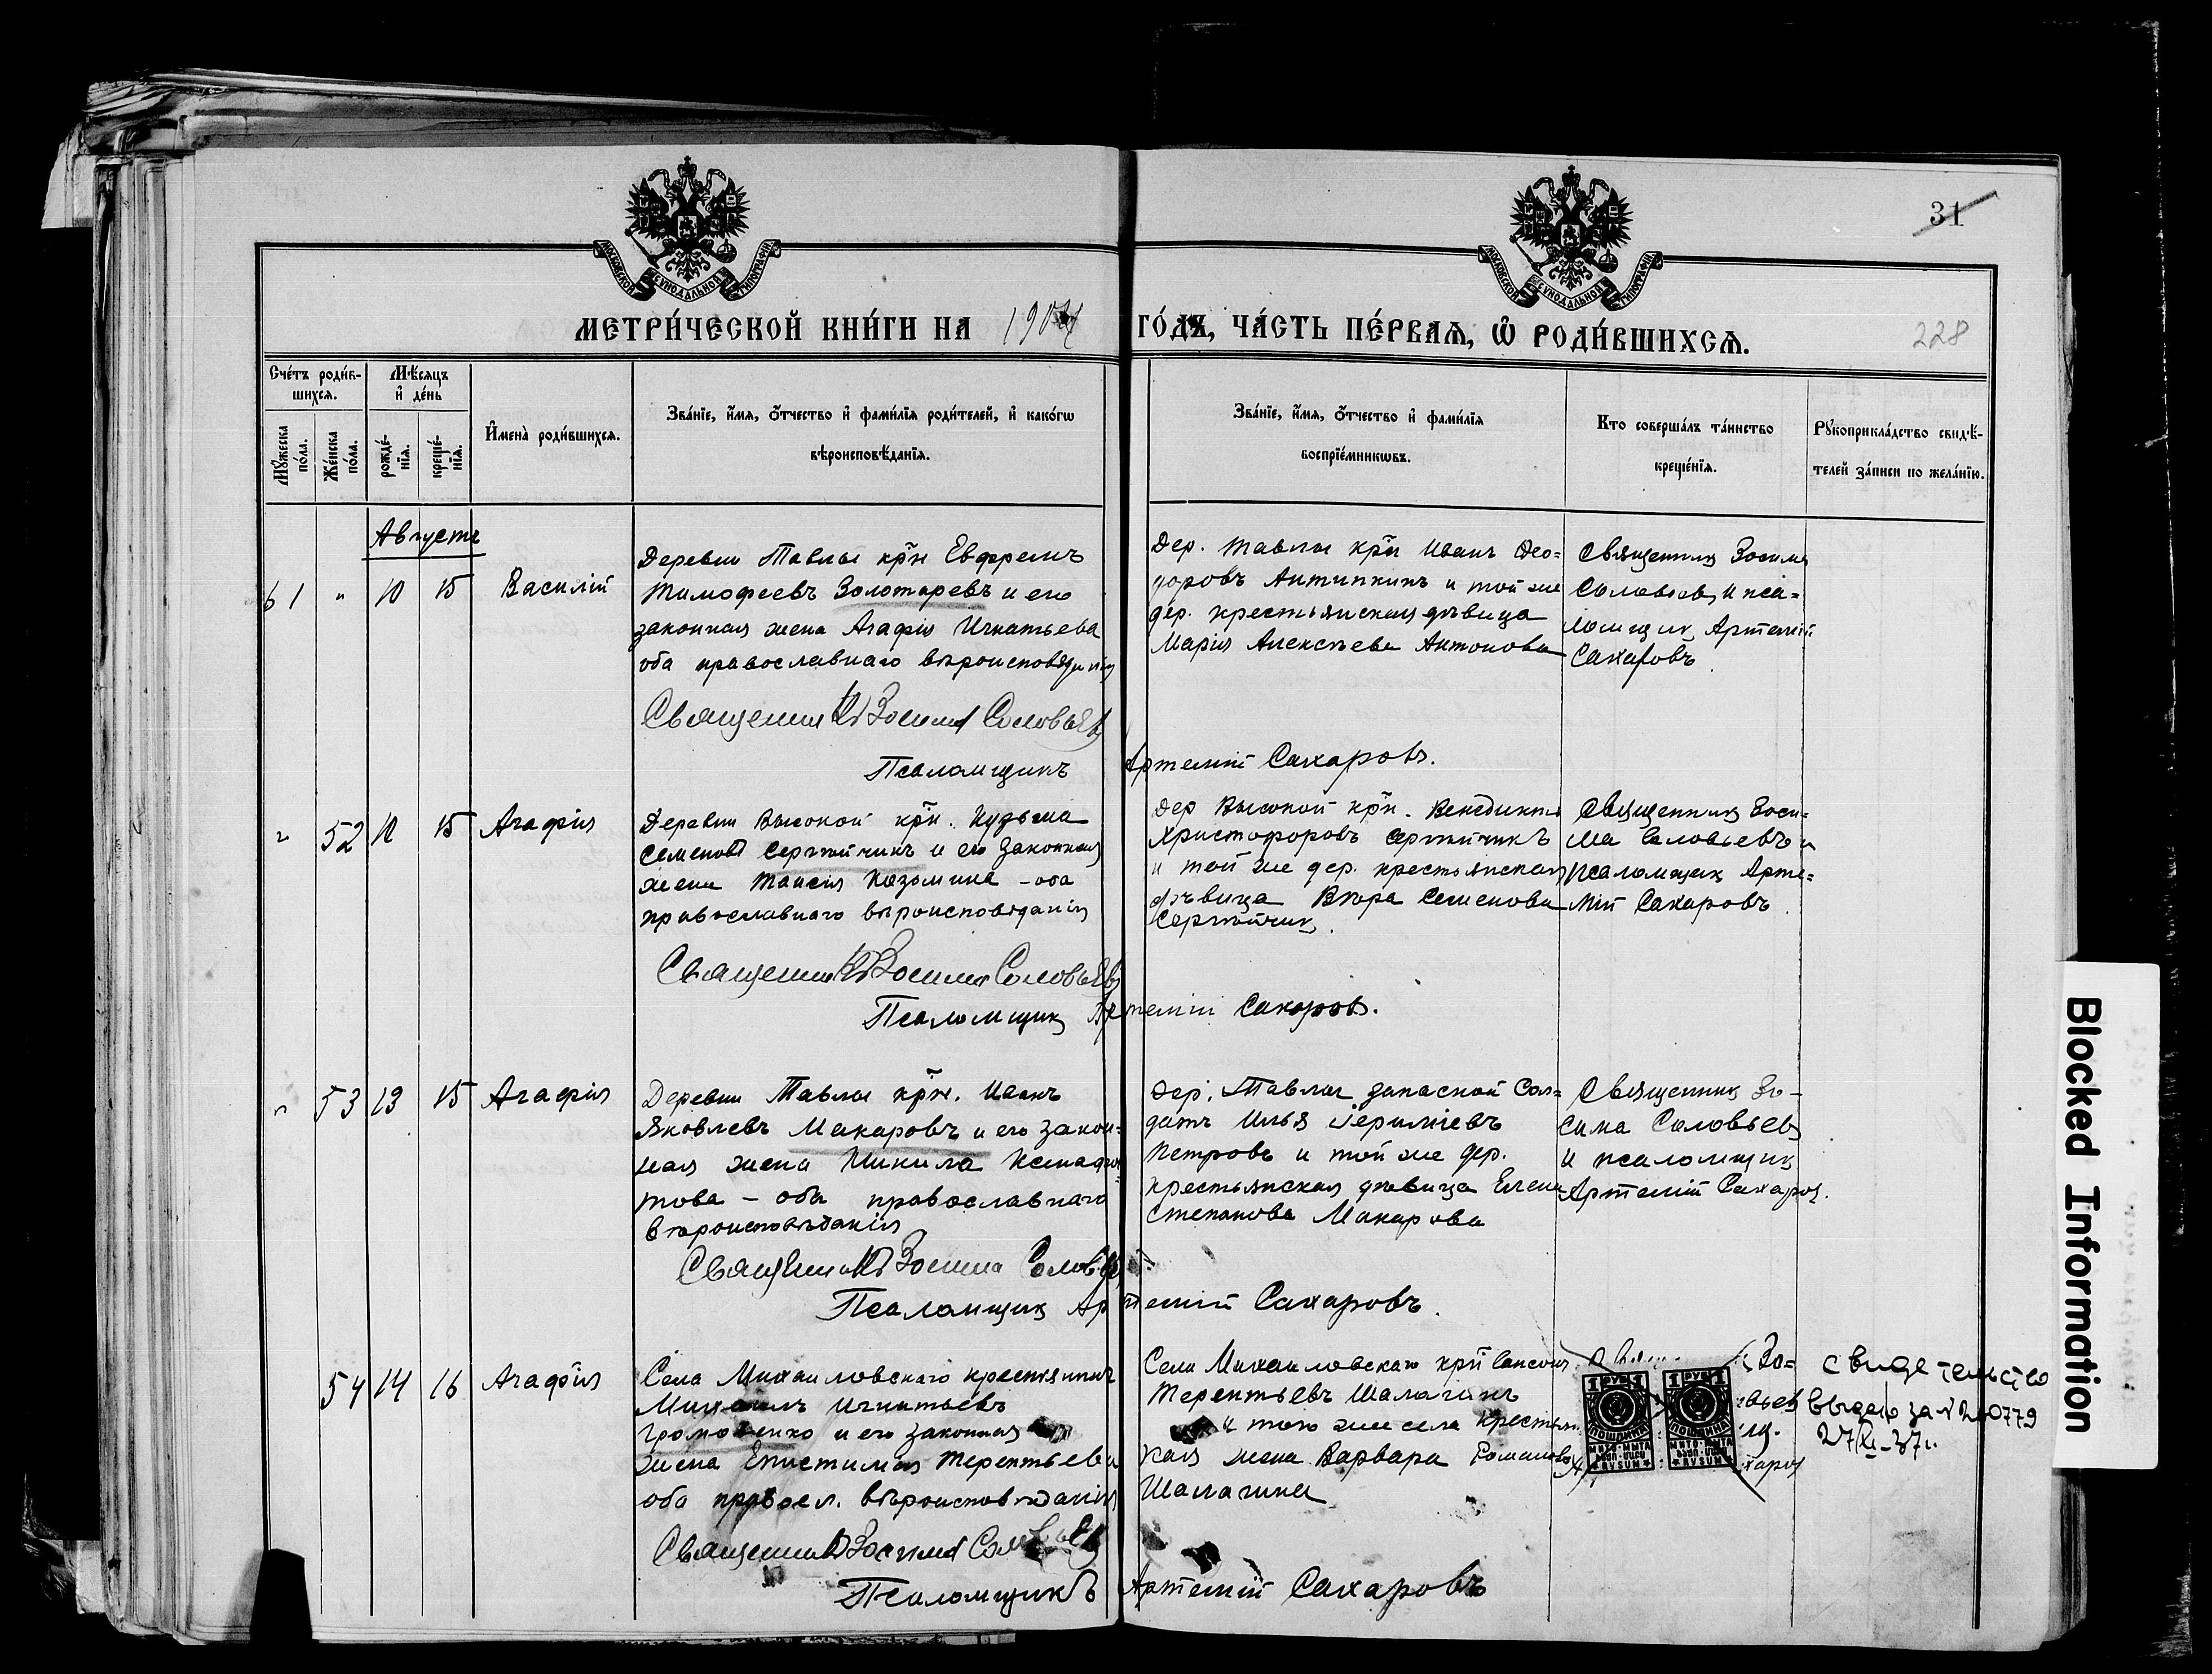 31
МОСКОВСКОЙ СѴНОДАЛЬНОЙ ТИПОГРАФІИ
МОСКОВСКОЙ СѴНОДАЛЬНОЙ ТИПОГРАФІИ
МЕТРИ́ЧЕСКОЙ КНИ́ГИ НА 190
ГО́ДЪ, ЧА́СТЬ ПЕ́РВАѦ, Ѡ РОДИ́ВШИХСѦ.
228
Сче́тъ роди́в-
шихсѧ.
Мѣ́сѧцъ
и҆ де́нь
Мꙋ́жеска
по́ла.
Же́нска
по́ла.
рожде́-
нїѧ.
креще́-
нїѧ.
И҆мена̀ роди́вшихсѧ.
Зва́нїе, и҆́мѧ, ѻ҆́тчество и҆ фами́лїѧ роди́телей, и҆ како́гѡ
вѣроисповѣ́данїѧ.
Зва́нїе, и҆́мѧ, ѻ҆́тчество и҆ фами́лїѧ
воспрїе́мникѡвъ.
Кто соверша́лъ та́инство
креще́нїѧ.
Рꙋкоприкла́дство свидѣ́-
телей за́писи по жела́нїю.
Августъ
61 " 10 15 Василій
Деревни Тавлы крн Евфремъ
Тимофеевъ Золотаревъ и его
законная жена Агафія Игнатьева
оба православнаго вѣроисповѣданія
Дер. Тавлы крн Иванъ Ѳео=
доровъ Антипкинъ и той же
дер. крестьянская дѣвица
Марія Алексѣева Антонова
Священникъ Зосима
Соловьевъ и пса=
ломщикъ Артемій
Сахаровъ.
Священникъ Зосима Соловьевъ
Псаломщикъ Артемій Сахаровъ.
" 52 10 15 Агафія
Деревни Высокой крн. Кузьма
Семеновъ Сергѣйчикъ и его законная
жена Таисія Козьмина - оба
православнаго вѣроисповѣданія
Дер Высокой крн. Венедиктъ
Христофоровъ Сергѣйчикъ
и той же дер. крестьянская
дѣвица Вѣра Семенова
Сергѣйчикъ.
Священникъ Зоси=
ма Соловьевъ и
псаломщикъ Арте=
мій Сахаровъ.
Священникъ Зосима Соловьевъ
Псаломщикъ Артемій Сахаровъ.
" 53 13 15 Агафія
Деревни Тавлы крн. Иванъ
Яковлевъ Макаровъ и его закон=
ная жена
това - оба православнаго
вѣроисповѣданія
Дер. Тавлы запасной Сол=
датъ Илья Іереміевъ
Петровъ и той же дер.
крестьянская дѣвица Елена
Степанова Макарова
Священникъ Зо-
сима Соловьевъ
и псаломщикъ
Артемій Сахаровъ.
Священникъ Зосима Соловьевъ
Псаломщикъ Артемій Сахаровъ.
54 14 16 Агафія
Села Михайловскаго крестьянинъ
Михаилъ Игнатьевъ
Громовенко и его законная
жена Епистимія Терентьева
оба правосл. вѣроисповѣданія
Села Михайловскаго крн
Терентьевъ Шалагинъ
и того же села крестьян
кая жена Варвара Романова
Шалагина
Зо=
1 РУБ 1
1 РУБ 1
ПОШЛИНА
ПОШЛИНА
свидетельство
выдано за № 240779
27/XI-37г.
Священникъ Зосима Соловьевъ
Псаломщикъ Артемій Сахаровъ
Blocked Information